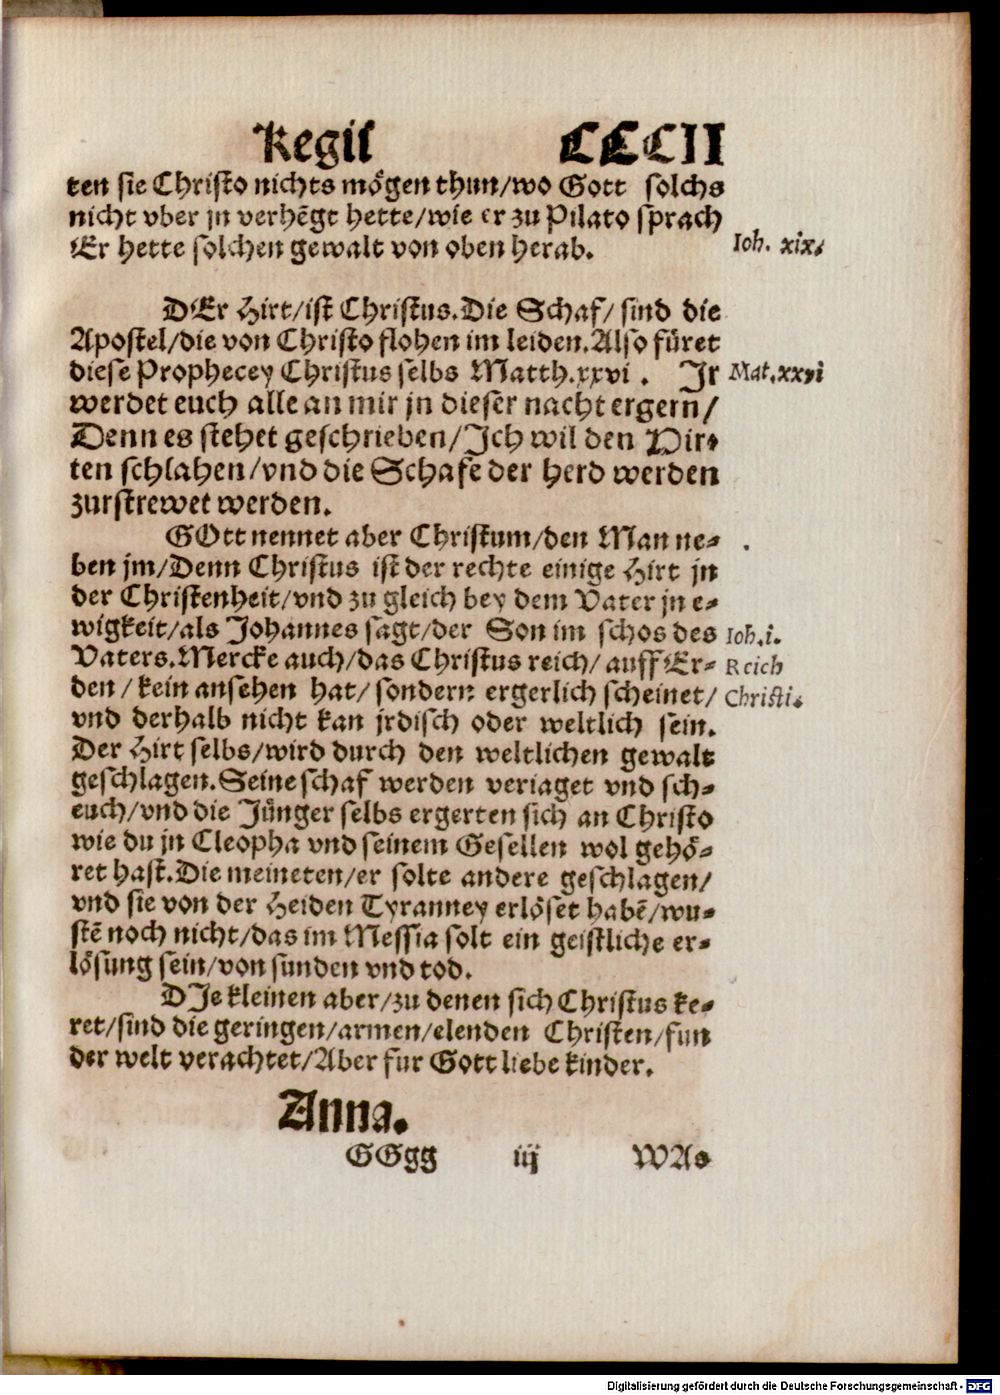 Regis CCCII
ten sie Christo nichts mögen thun/wo Gott solchs
nicht vber jn verhẽgt hette/wie er zu Pilato sprach
Er hette solchen gewalt von oben herab.
Ioh. xix.
DEr Hirt/ist Christus.Die Schaf/ sind die
Apostel/die von Christo flohen im leiden.Also füret
diese Prophecey Christus selbs Matth.xxvi. Jr
Mat.xxvi
werdet euch alle an mir jn dieser nacht ergern/
Denn es stehet geschrieben/Ich wil den Hir-
ten schlahen/vnd die Schafe der herd werden
zurstrewet werden.
GOtt nennet aber Christum/den Man ne-
ben jm/Denn Christus ist der rechte einige Hirt jn
der Christenheit/vnd zu gleich bey dem Vater jn e-
wigkeit/als Johannes sagt/der Son im schos des
Ioh.i.
Vaters.Mercke auch/das Christus reich/ auff Er-
Reich
den/ kein ansehen hat/ sondern ergerlich scheinet/
Christi.
vnd derhalb nicht kan jrdisch oder weltlich sein.
Der Hirt selbs/wird durch den weltlichen gewalt
geschlagen.Seine schaf werden veriaget vnd sch-
euch/vnd die Jünger selbs ergerten sich an Christo
wie du jn Cleopha vnd seinem Gesellen wol gehö-
ret hast.Die meineten/er solte andere geschlagen/
vnd sie von der Heiden Tyranney erlöset habẽ/wu-
stẽ noch nicht/das im Messia solt ein geistliche er-
lösung sein/von sunden vnd tod.
DIe kleinen aber/zu denen sich Christus ke-
ret/sind die geringen/armen/elenden Christen/fun
der welt verachtet/Aber fur Gott liebe kinder.
Anna.
GGgg iij WAs
Digitalisierung gefördert durch die Deutsche Forschungsgemeinschaft - DFG